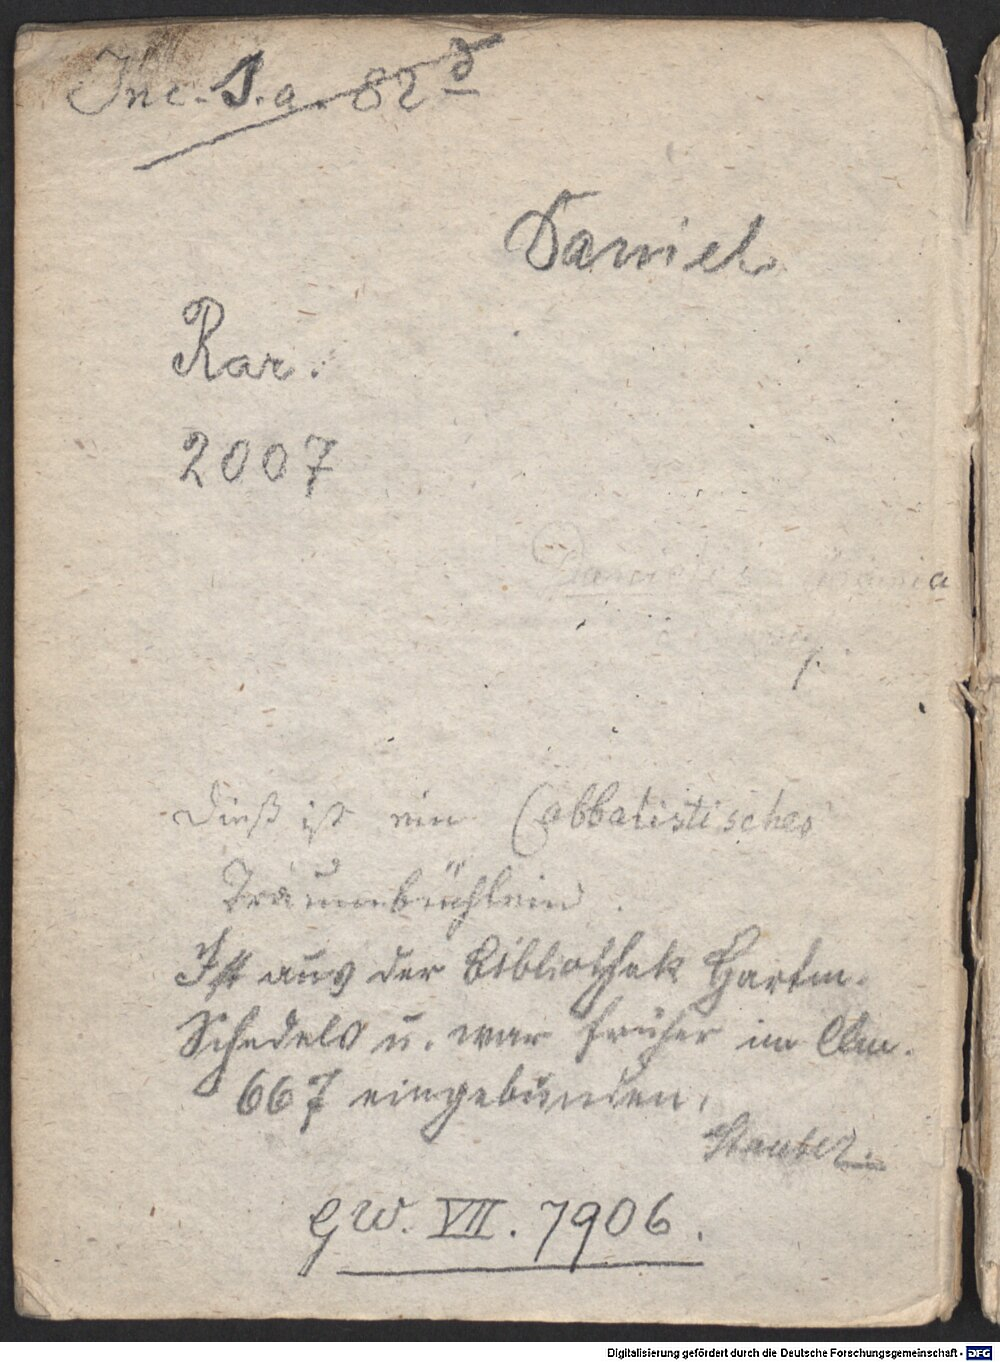 Inc. s. a. 82 d
Daniel
Rar.
2007
Danielis
Dieß ist ein Cabbalistisches
Traumbüchlein.
Ist aus der Bibliothek Hartm.
Schedels u. war früher im Clm.
667 eingebunden.
GW. VII. 7906.
Digitalisierung gefördert durch die Deutsche Forschungsgemeinschaft - DFG